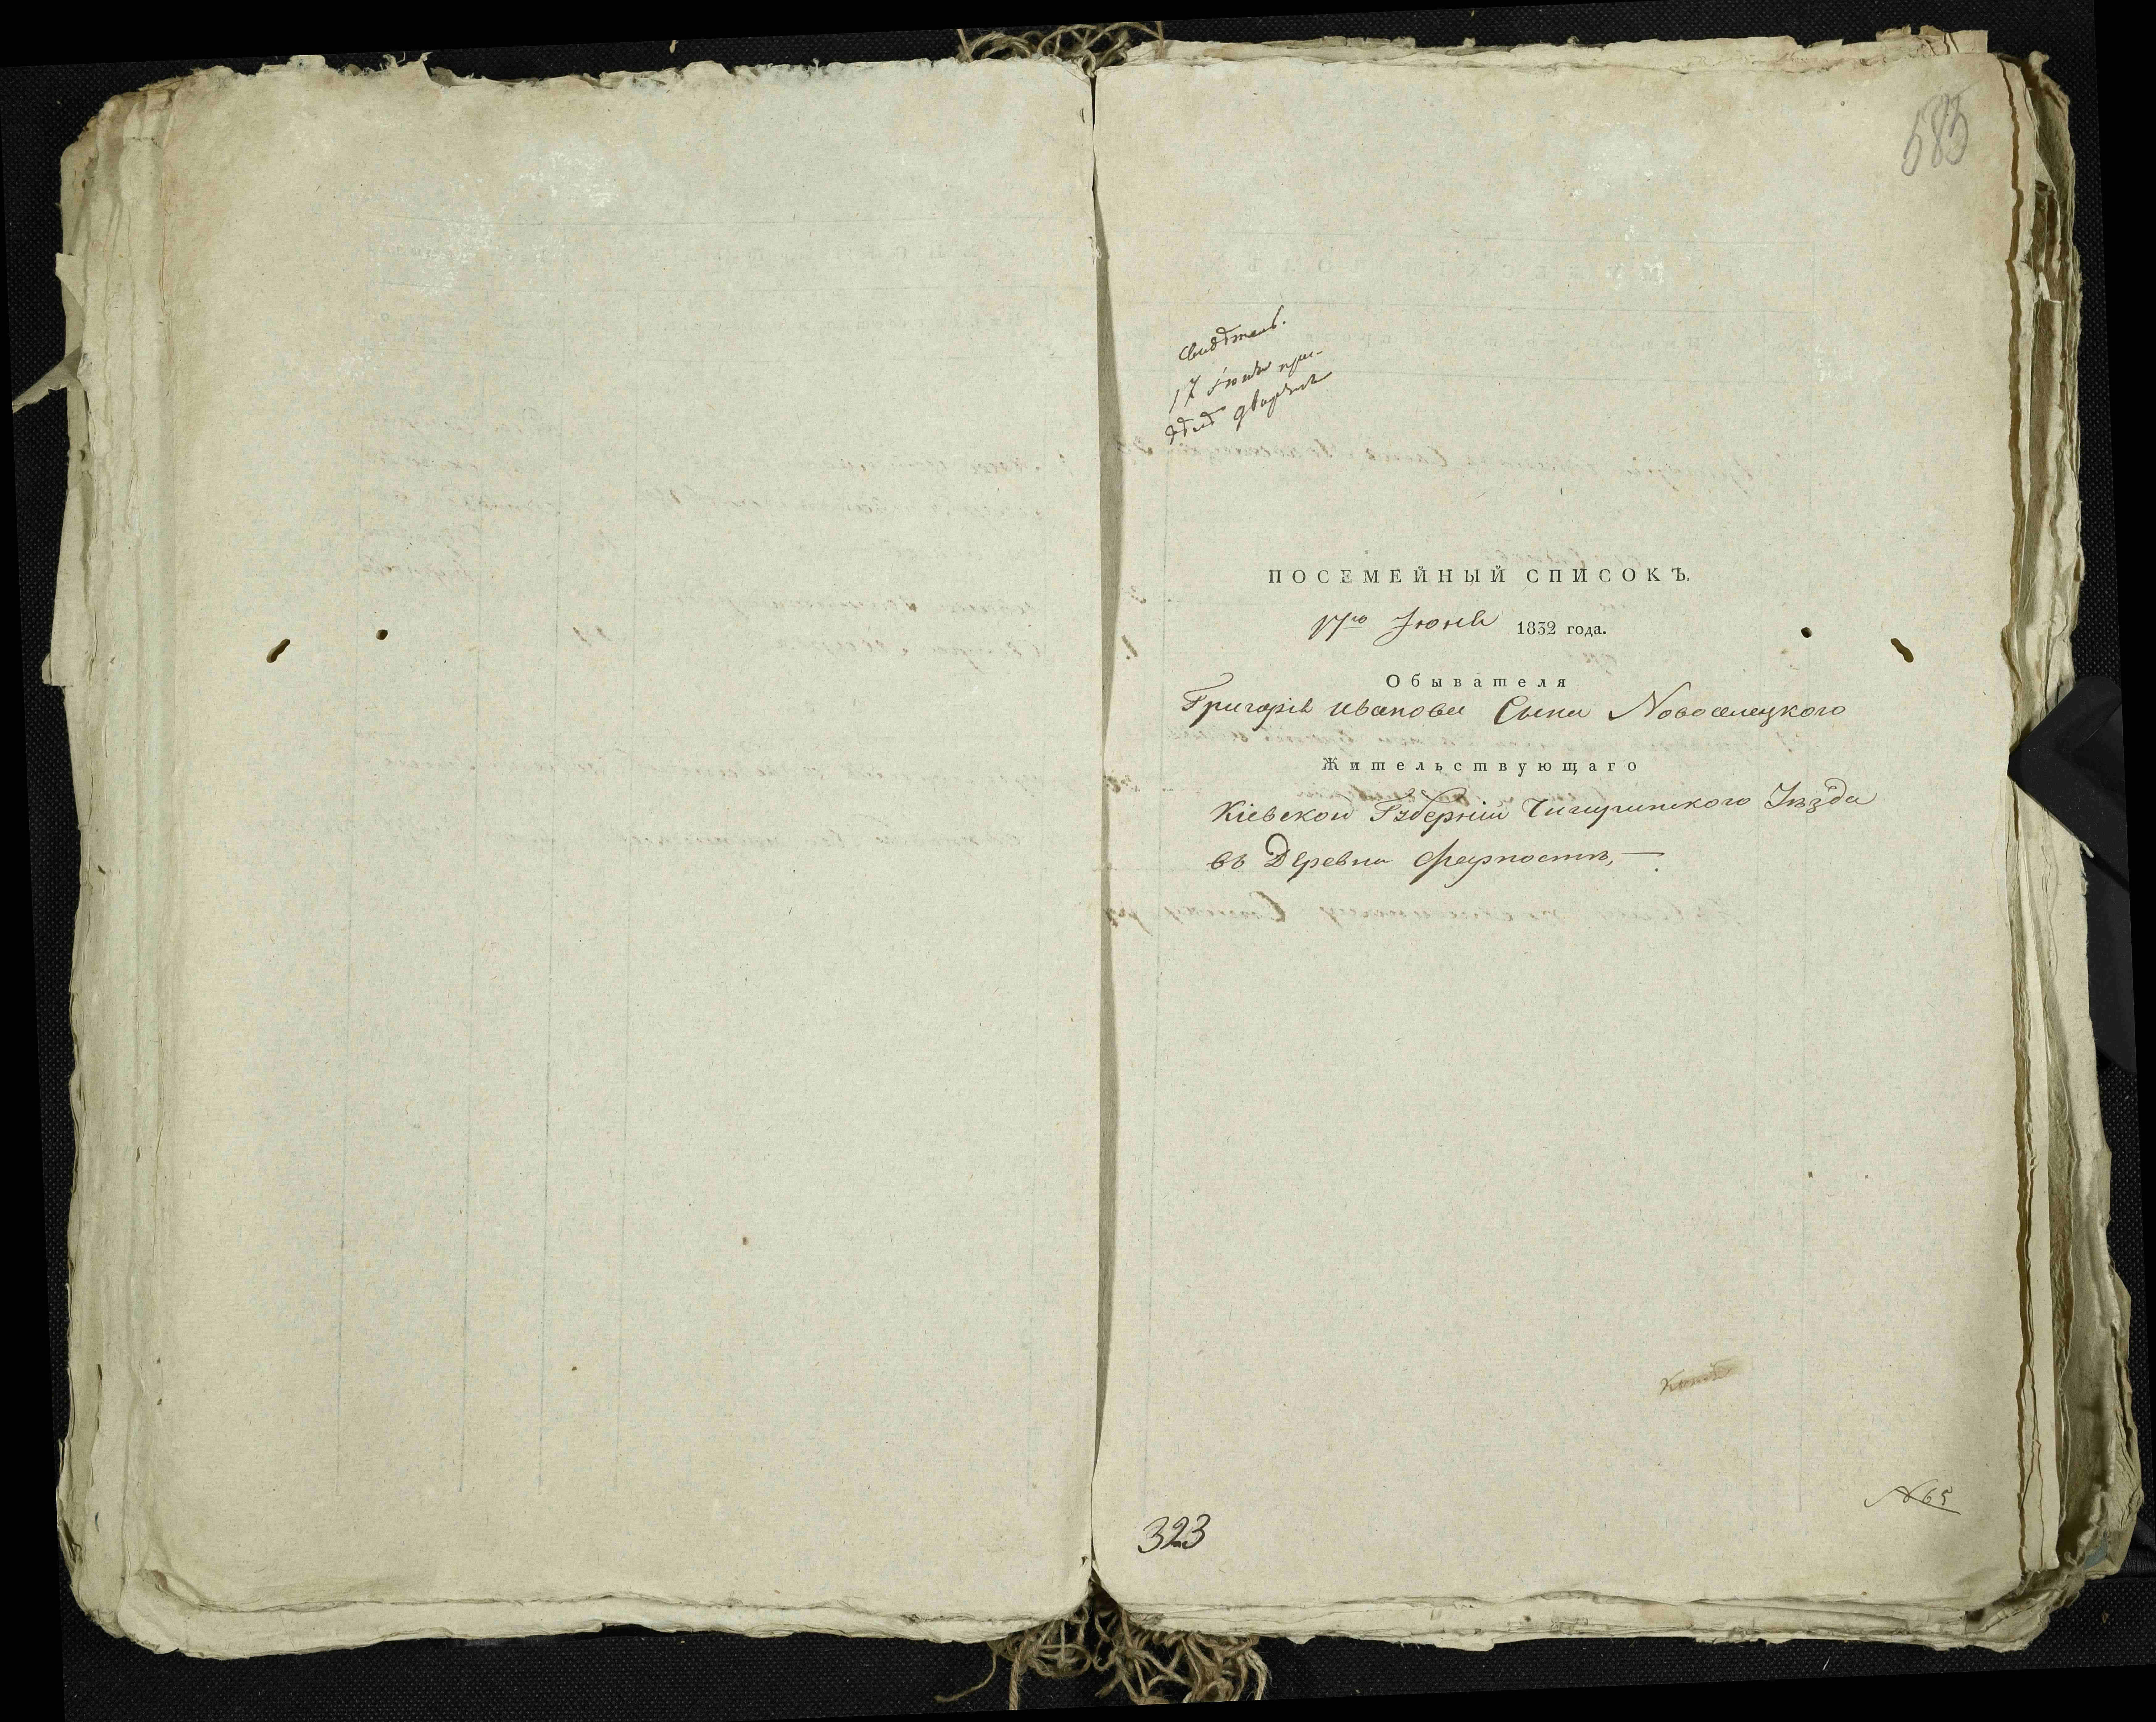 585
свидѣтел.
17 іюня при-
ПОСЕМЕЙНЫЙ СПИСОКЪ.
17го Іюня 1832 года.
Обывателя
Григорія Иванова Сына Новоселецкого
Жительствующаго
Кіевской Губерніи Чигиринского Уѣзда
въ Деревни Форпостѣ, —
N 65
323